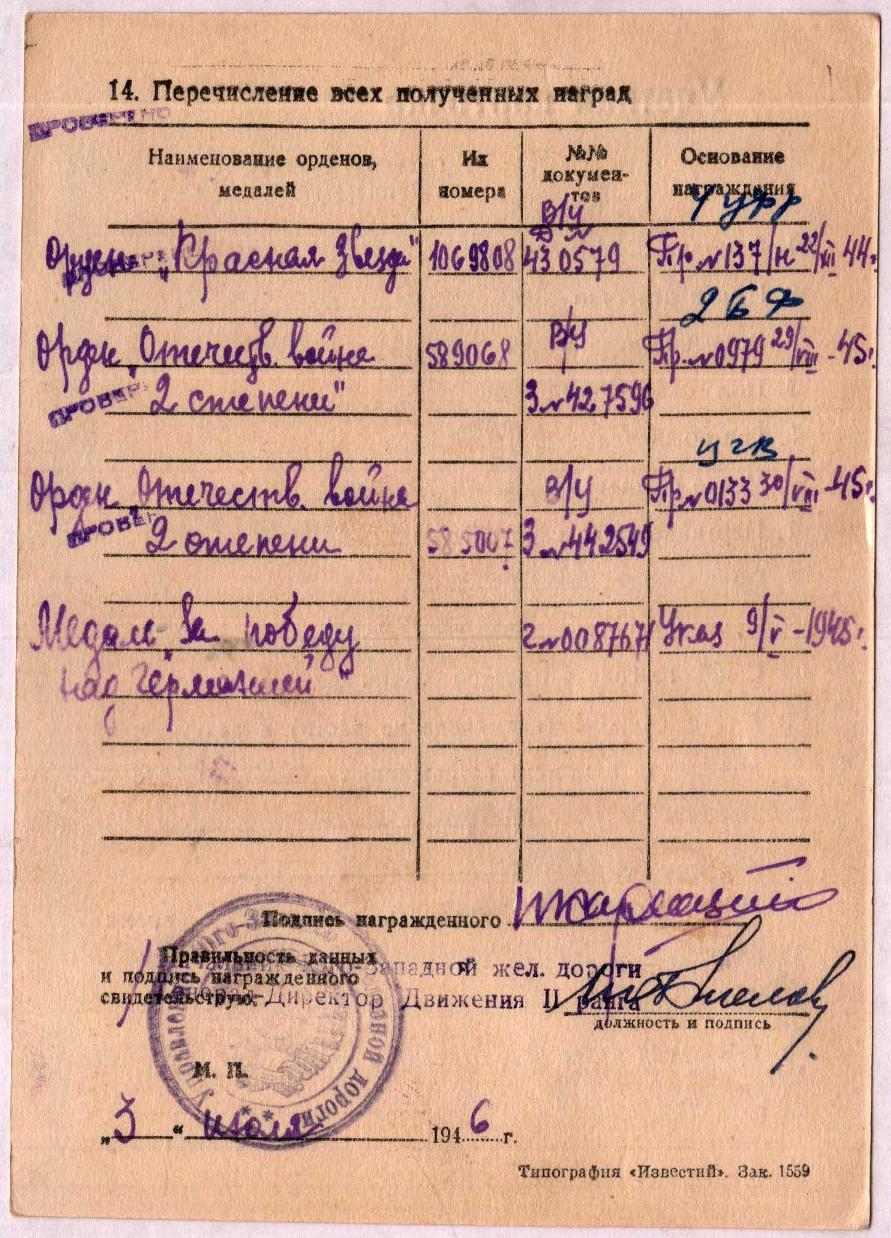 14. Перечисление всех полученных наград
ПРОВЕРЕНО
Наименование орденов, медалей
Их номера
№№ документов
Основание награждения
В/У
4 УФР
Орден „Красная Звезда"
1069808
430579
Пр. №137/н 22/XII 44г.
2 БФ
Орден „Отечеств. война
589068
В/У
Пр. №0979 29/VIII-45г.
ПРОВЕРЕ
2 степени"
З №427596
ЦГВ
Орден Отечеств. война
В/У
Пр №0133 30/VIII-45г.
ПРОВЕ
2 степени
585007
З №442549
Медаль „За победу
Г №0087671
Указ 9/V-1945г.
над Германией"
Подпись награжденного
Правильность данных
и подпись награжденного
свидетельствую.
Западной жел. дороги
Директор Движения II ранга
должность и подпись
Управление
дороги
М. П.
„3" июля 1946 г.
Типография «Известий». Зак. 1559